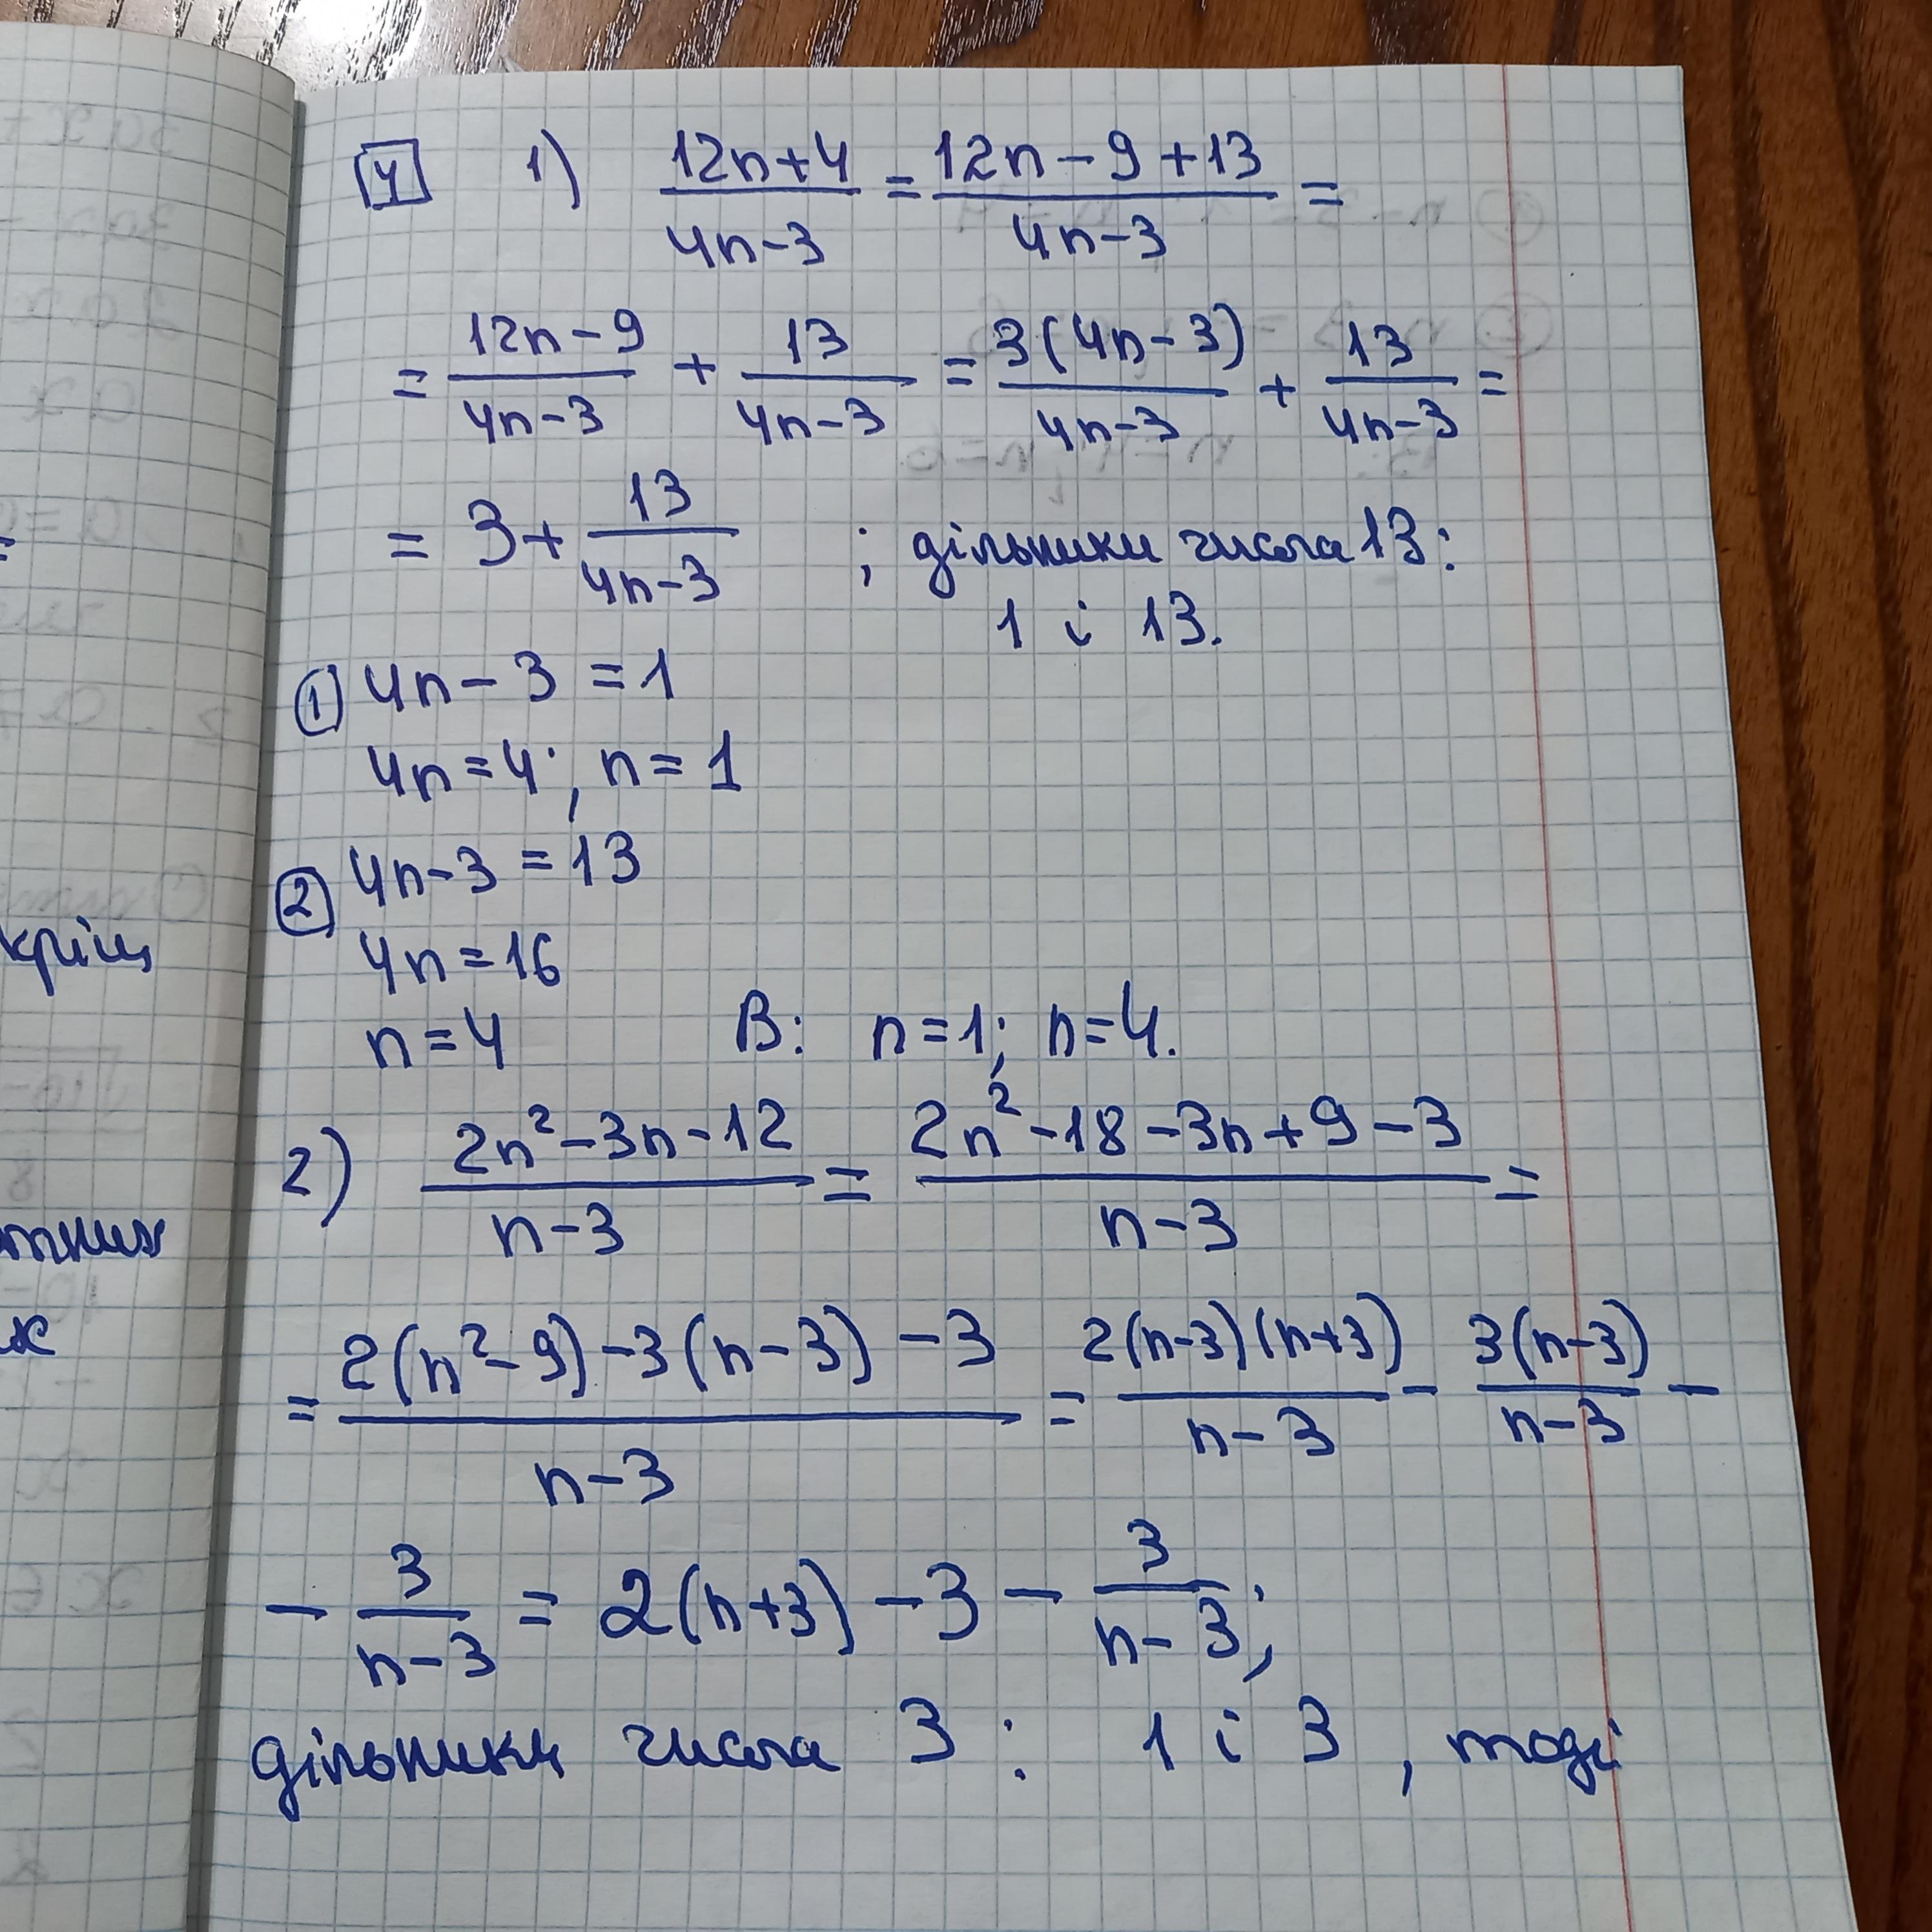 4 1) (12n+4)/(4n-3) = (12n-9+13)/(4n-3) =
= (12n-9)/(4n-3) + 13/(4n-3) = 3(4n-3)/(4n-3) + 13/(4n-3) =
= 3 + 13/(4n-3) ; дільники числа 13:
1 і 13.
① 4n-3 = 1
4n = 4; n = 1
② 4n-3 = 13
4n = 16
n = 4 В: n = 1; n = 4.
2) (2n²-3n-12)/(n-3) = (2n²-18-3n+9-3)/(n-3) =
= (2(n²-9)-3(n-3)-3)/(n-3) = 2(n-3)(n+3)/(n-3) - 3(n-3)/(n-3) -
- 3/(n-3) = 2(n+3) - 3 - 3/(n-3);
дільники числа 3: 1 і 3, тоді